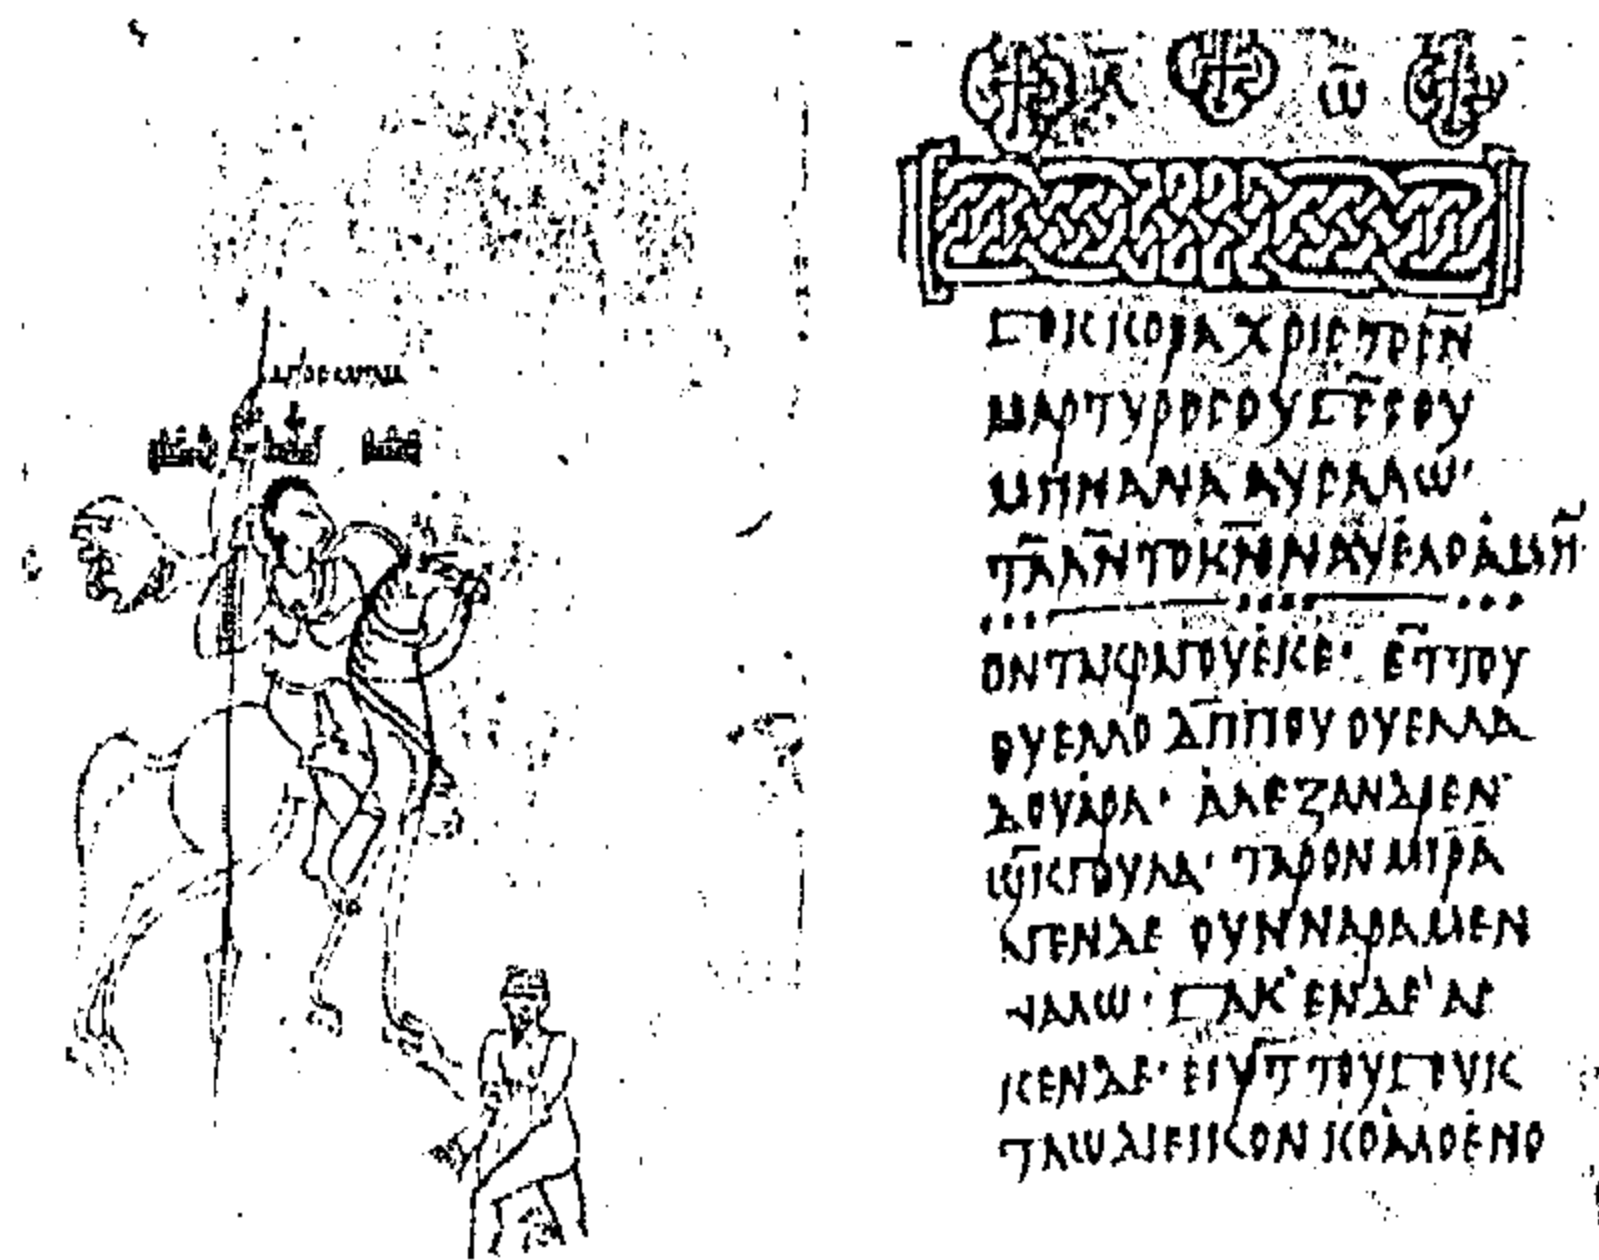 ⲁ̄ ⲱ̄
ⳟⲟⲕⲕⲟⲣⲁ ⲭⲣⲓⲥⲧⲟⲥⲛ̄
ⲙⲁⲣⲧⲩⲣⲟⲥⲟⲩ ⳟⲥ̄ⲥⲟⲩ
ⲙⲏⲛⲁⲛⲁ ⲁⲩⲥⲁⲗⲱ·
ⲧⲁ̄ⲗⲛ̄ ⲧⲟⲕⲛ̄ⲛⲟⲛ ⲁⲩⲉⲗⲟ ⲁⲙⲏ̄
ⲟⲛⲧⲁⲕⲣⲁⲅⲟⲩⲉ̇ⲕⲉ· ⲉⲧ̄ⲧⲟⲩ
ⲟⲩⲉⲗⲗⲟ ⲇⲡ̄ⲡⲟⲩ ⲟⲩⲉⲗⲗⲁ
ⲇⲟⲩⲁ̇ⲣⲁ· ⲁ̇ⲗⲉⲝⲁⲛⲇⲣⲉⲛ
ϣ̄ⲕⲅⲟⲩⲗⲁ· ⲧⲁⲣⲟⲛ ⲙⲓⲣⲁ̄
ⲁⲅⲉⲛⲇⲉ ⲟⲩⲛⲛⲁⲣⲁ ⲙⲉⲛ
ⲛⲁⲗⲱ· ⳟⲁⲕ ⲉⲛⲇⲉ ⲁⲥ
ⲕⲉⲛⲇⲉ· ⲉⲓⲣⲧ̄ⲧⲟⲩⳟⲟⲩⲕ
ⲧⲁⲱⲇⲉⲕⲕⲟⲛ ⲕⲟⲗⲗⲟⲉ̇ⲛⲟ